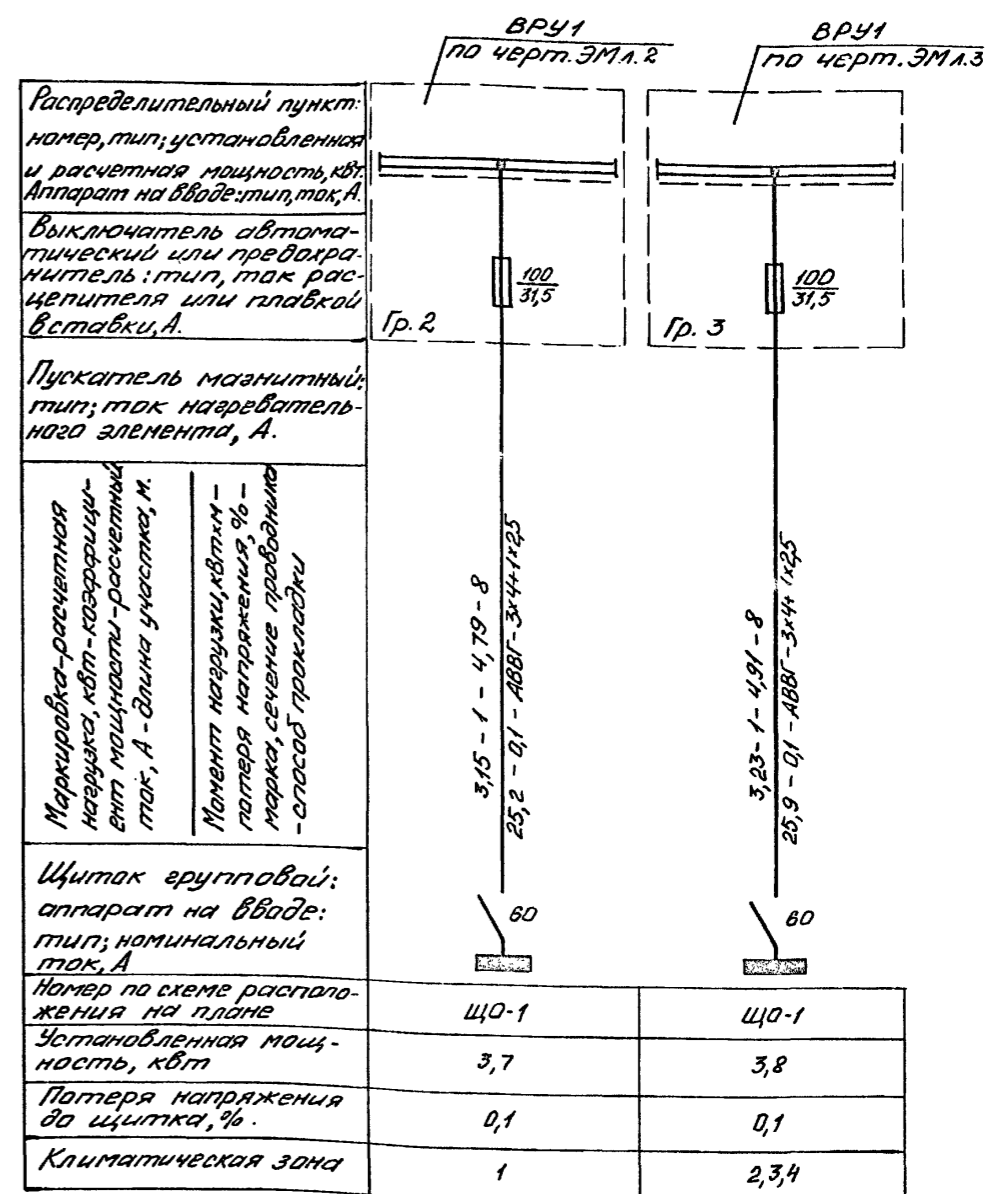 ВРУ1
по черт. ЭМ л. 2
ВРУ1
по черт. ЭМ л. 3
Распределительный пункт:
номер, тип; установленная
и расчетная мощность, квт.
Аппарат на вводе: тип, ток, А.
Выключатель автома-
тический или предохра-
нитель: тип, ток рас-
цепителя или плавкой
вставки, А.
100
31,5
Гр. 2
100
31,5
Гр. 3
Пускатель магнитный:
тип; ток нагреватель-
ного элемента, А.
Маркировка-расчетная
нагрузка, квт-коэффици-
ент мощности-расчетный
ток, А - длина участка, м.
Момент нагрузки, квт×м -
потеря напряжения, % -
марка, сечение проводника
- способ прокладки
3,15 - 1 - 4,79 - 8
25,2 - 0,1 - АВВГ-3×4+1×2,5
3,23 - 1 - 4,91 - 8
25,9 - 0,1 - АВВГ-3×4+1×2,5
Щиток групповой:
аппарат на вводе:
тип; номинальный
ток, А
60
60
Номер по схеме располо-
жения на плане
ЩО-1
ЩО-1
Установленная мощ-
ность, квт
3,7
3,8
Потеря напряжения
до щитка, %.
0,1
0,1
Климатическая зона
1
2,3,4